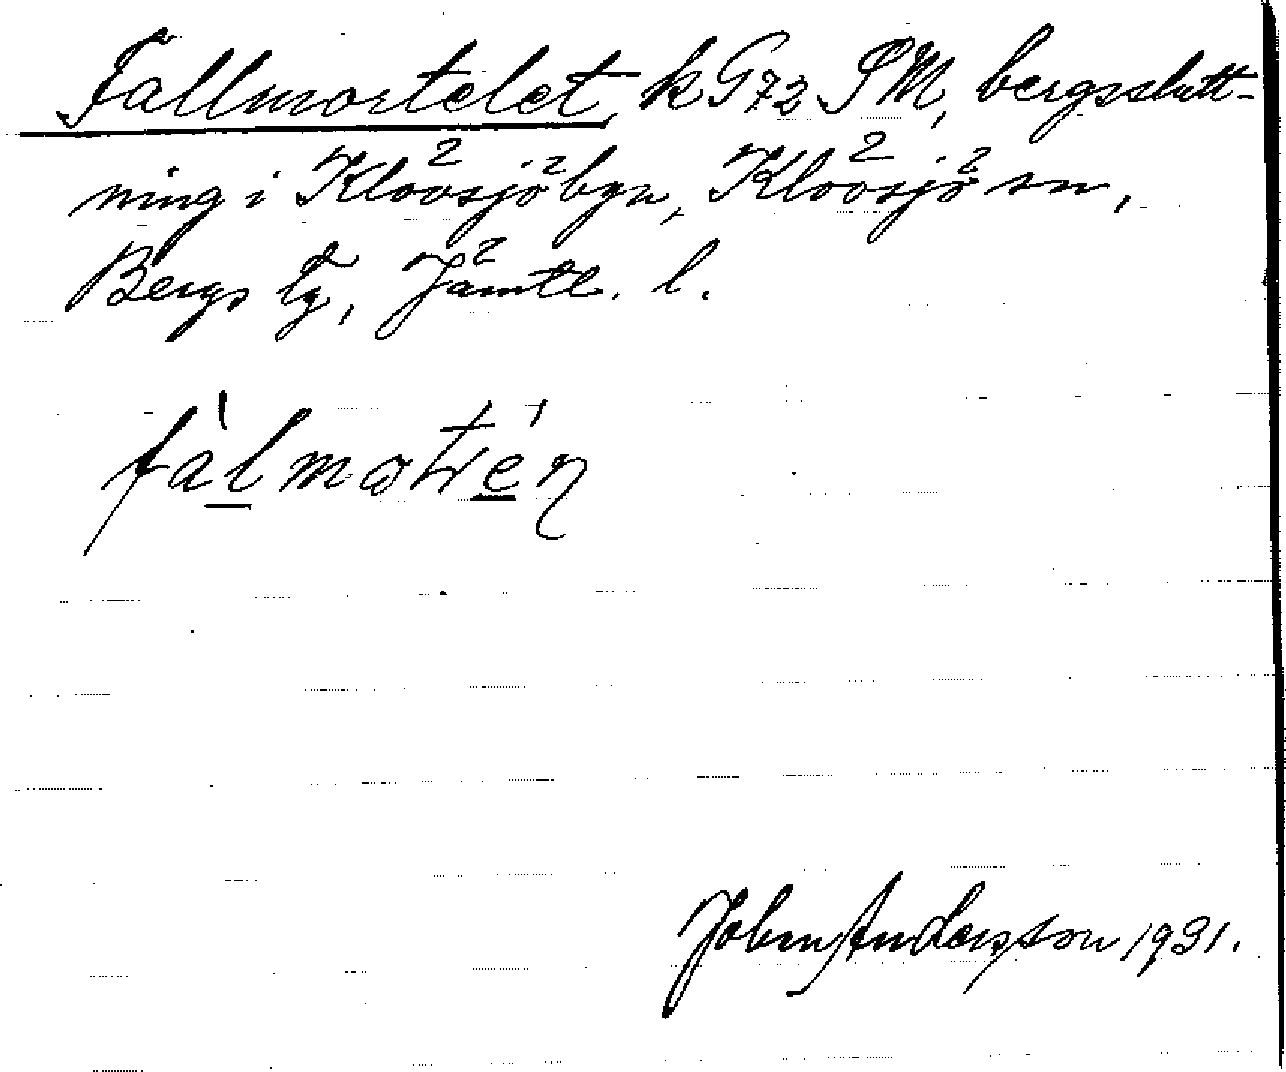 Fallmortelet, k G73 SM, bergsslutt-
ning i Klövsjöbyn, Klövsjö sn,
Bergs tg, Jämtl. l.
John Andersson 1931.